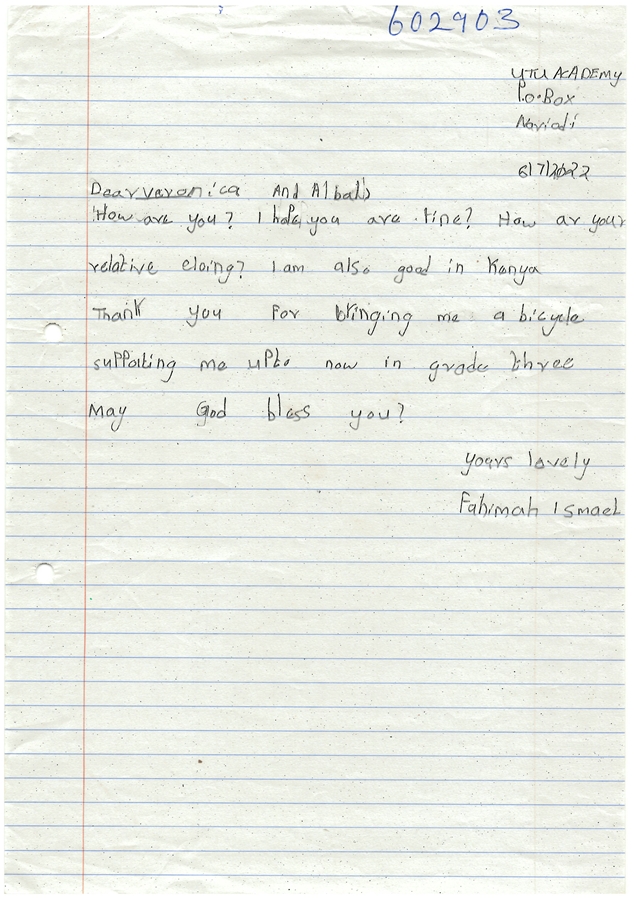 602903
UTU ACADEMY
P.O.Box
Noriadi
6/7/2022
Dear veronica And Alball
How are you? I hope you are tine? How ar your
relative eloing? I am also good in Kanya
Thank you For bringing me a bicycle
supporting me upto now in grade three
May God bless you?
yours lovely
Fahimah Ismael